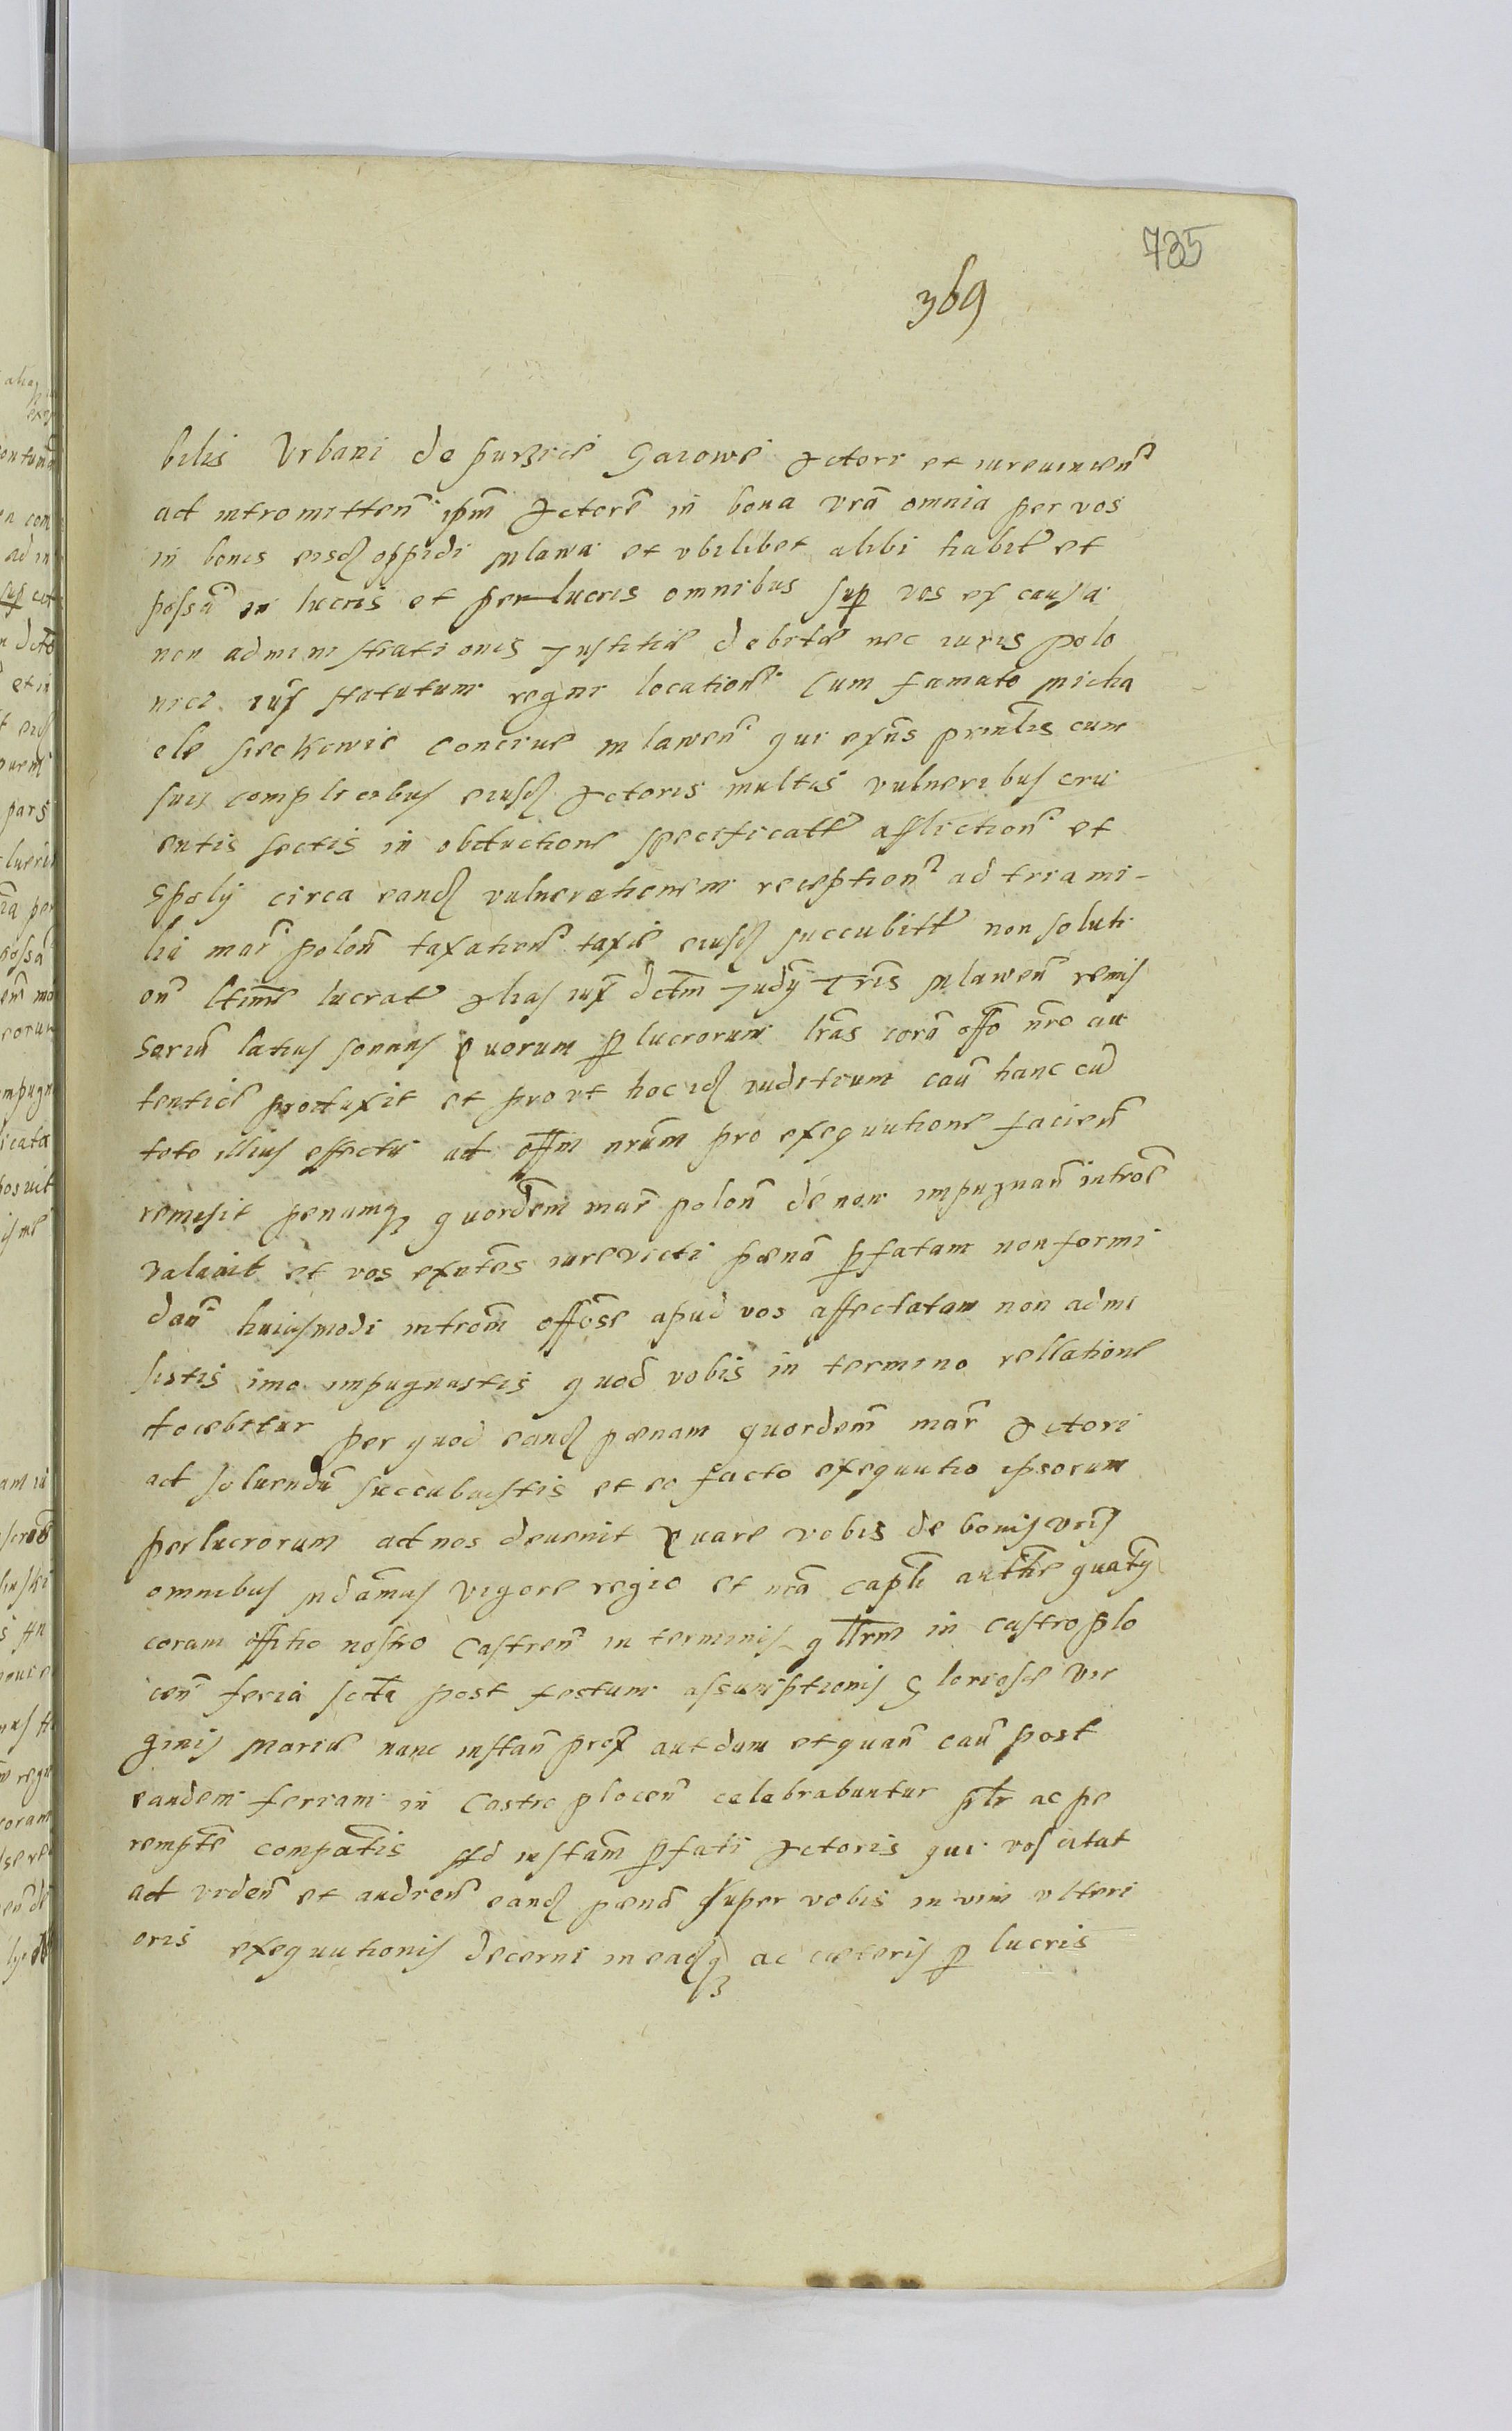 735
369
bilis Urbani de purzice Gaiowe Actori et iurevincen̄
ad intromitten̄ ipm̄ Actorē in bona vrā omnia per vos
in bonis eisd oppidi mlawa et vbilibet alibi habit et
possā in lucris et perlucris omnibus sup vos ex causa
non administrationis Justitiae debitae nec iuris polo
nici iux statutum regni location̄ Cum famato micha
ele cive mlawen̄ qui exn̄s prin̄lis cum
suis complicibus eiusd Actoris multis vulneribus cru
entis sectis in obductione specificatt affliction̄ et
spolij circa eand vulnerationem reception̄ ad tria mi-
lia mar̄ polon̄ taxation̄ taxae eiusd succubitt non soluti
on̄ ltime lucrat Alias iux dctm̄ Judy Tris mlawen̄ remis
soriā latius sonans Quorum p lucrorum lrās corā offo nrō au
tentice produxit et provt hoc id iuditium cau hanc cū
toto illius effectu ad offm nrūm pro exequutione facien̄
remisit penamq quordem̄ mar̄ polon̄ de non impugnan̄ introē
valavit et vos exntēs iurevicti paenā pfatam non formi
dan̄ huiusmodi introm̄ offōse apud vos affectatam non admi
sistis imo impugnastis quod vobis in termino rellatione
docebitur per quod eand paenam quordem̄ mar̄ Actori
ad soluendū succubuistis et eo facto exequutio ipsorum
perlucrorum ad nos devenit Quare vobis de bonis vris
omnibus mdāmus vigore regio et nrā capli autthe quaty
coram offitio nostro Castren̄ in terminis qllrm in castro plo
cen̄ feria scda post festum assumptionis Gloriose Vir
ginis Mariae nunc instan̄ prox aut dum et quan̄ cau post
eandem feriam in Castro plocen̄ celebrabuntur pltr ac pe
remptē compatis Ad instam̄ pfati Actoris qui vos citat
ad vrden̄ et audien̄ eand paenā super vobis in vim vlteri
oris exequutionis decerni in eadq ac caeteris p lucris